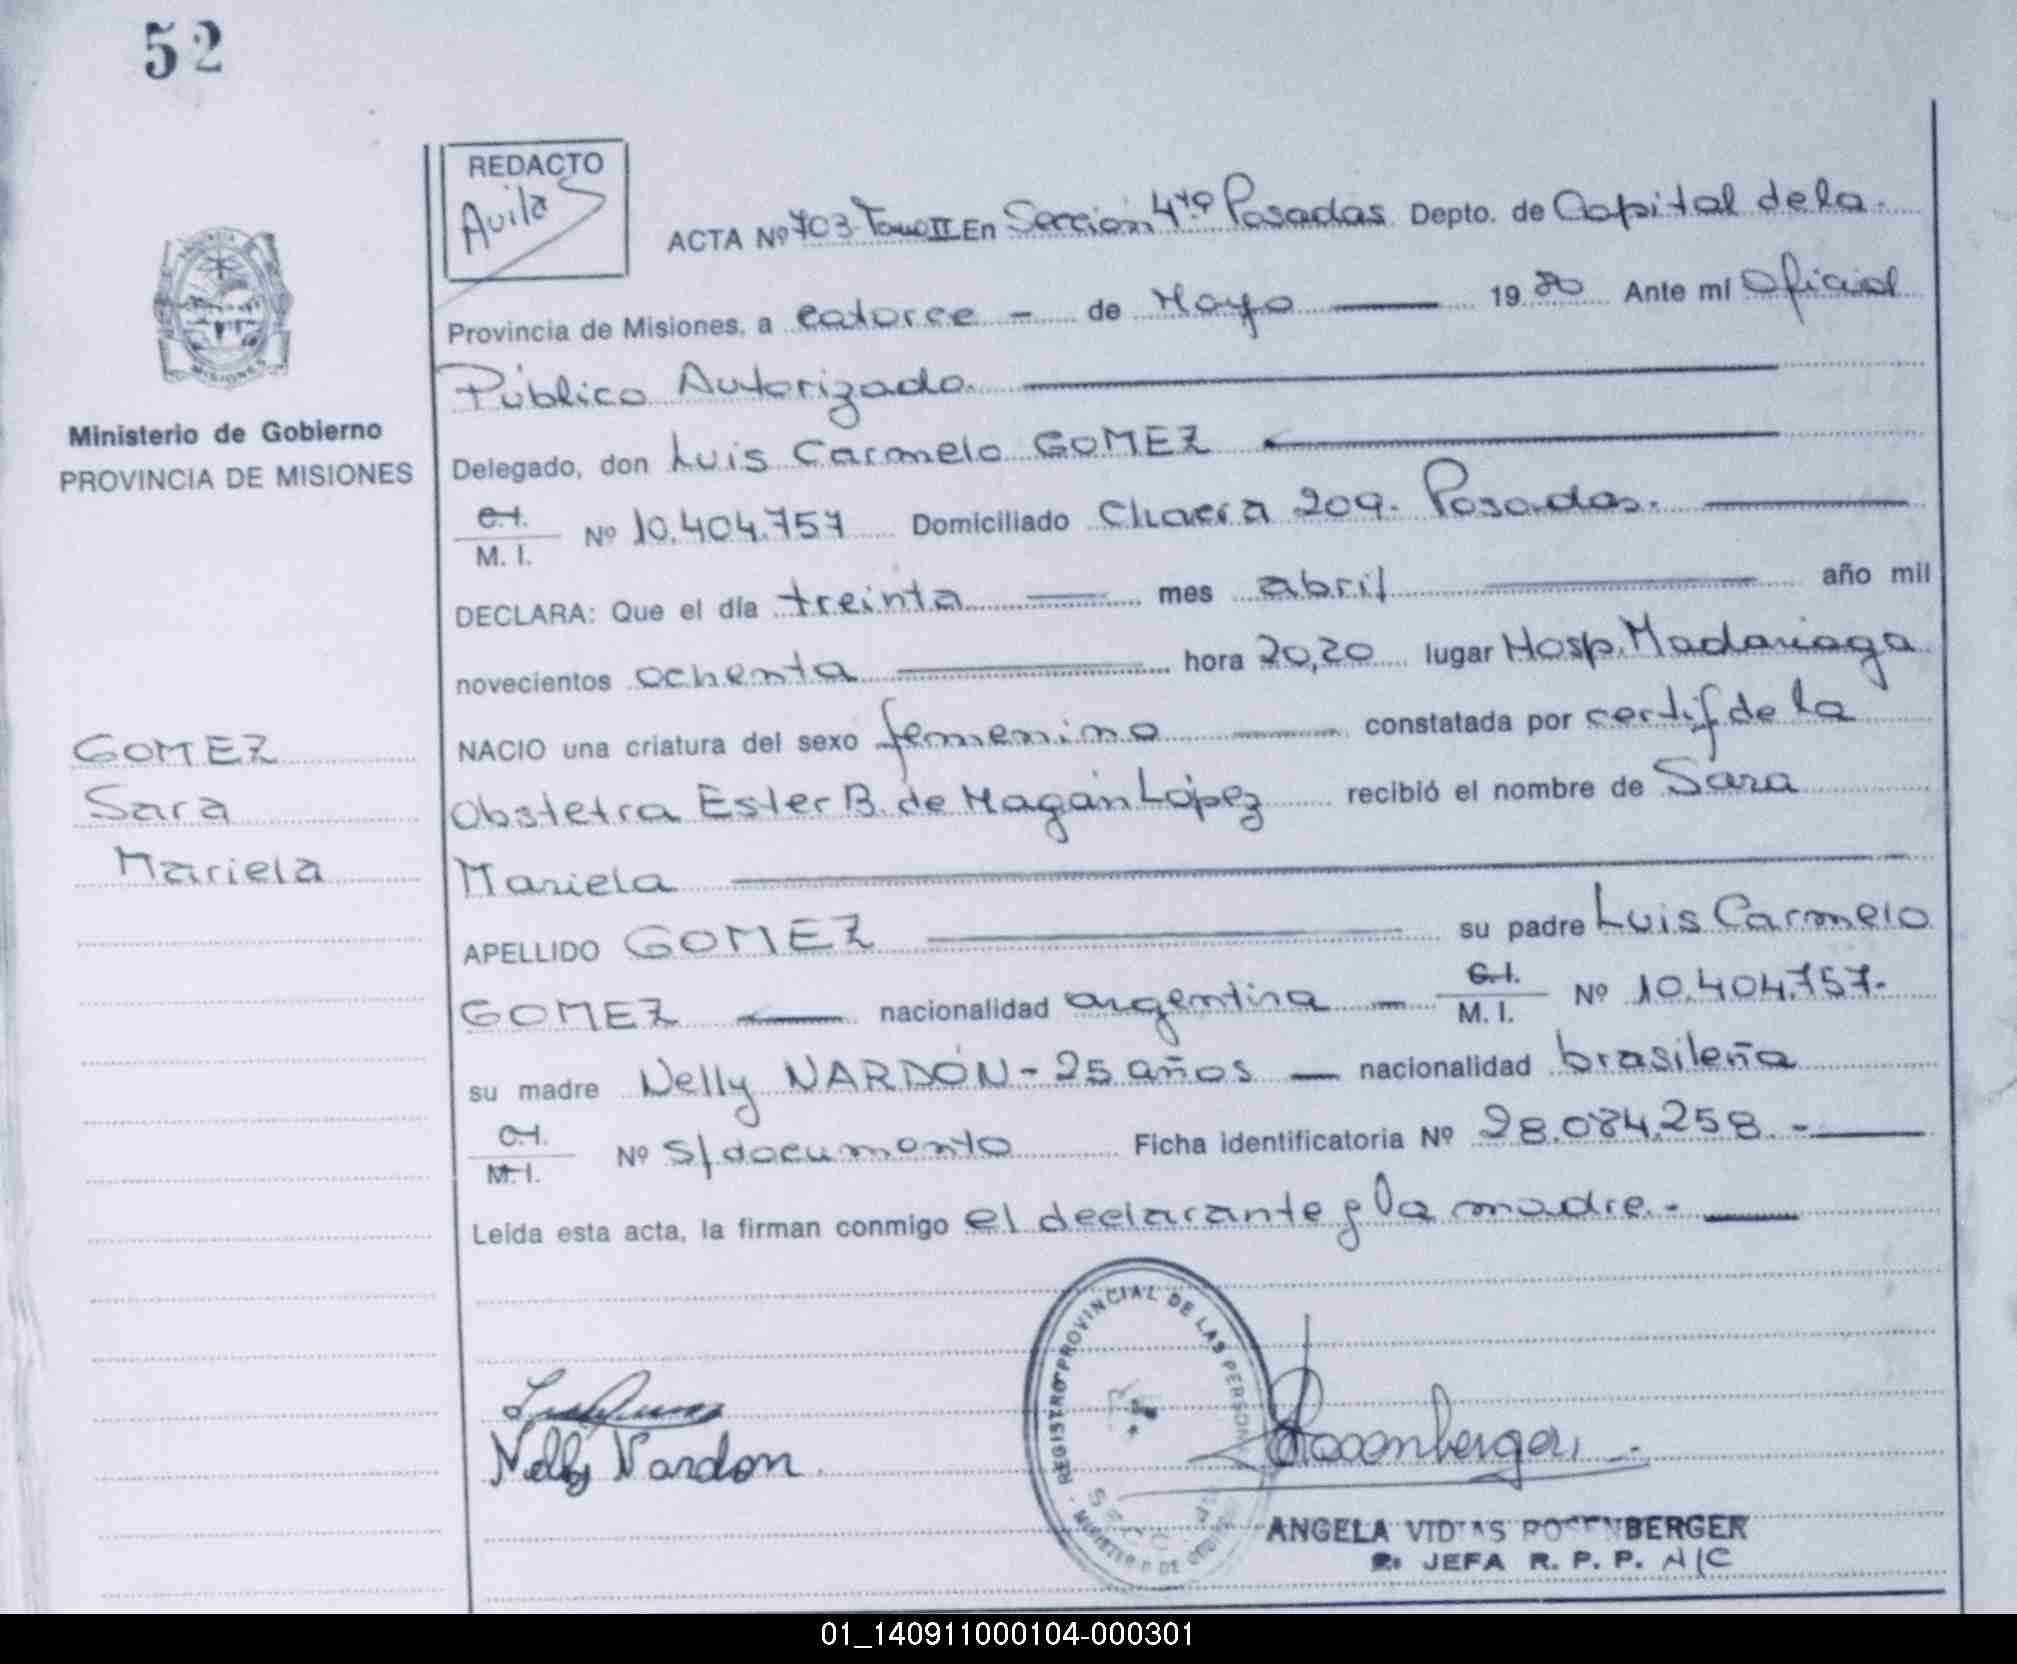 52
REDACTO
Avila
ACTA Nº 703 Tomo II En Sección 4ta Posadas Depto. de Capital de la
Provincia de Misiones, a catorce - de Mayo 1980 Ante mí Oficial
Público Autorizado
MISIONES
Ministerio de Gobierno
PROVINCIA DE MISIONES
Delegado, don Luis Carmelo GOMEZ
C.I.
M. I. Nº 10.404.757 Domiciliado Chacra 209. Posadas.
DECLARA: Que el día treinta mes abril año mil
novecientos ochenta hora 20,20 lugar Hosp. Madariaga
NACIO una criatura del sexo femenino constatada por certif de la
Obstetra Ester B. de Magán López recibió el nombre de Sara
Mariela
GOMEZ
Sara
Mariela
APELLIDO GOMEZ su padre Luis Carmelo
GOMEZ nacionalidad argentina - C.I.
M. I. Nº 10.404.757.-
su madre Nelly NARDÓN - 25 años - nacionalidad brasileña
C.I.
M. I. Nº s/documento Ficha identificatoria Nº 28.084.258.-
Leída esta acta, la firman conmigo el declarante y la madre.-
REGISTRO PROVINCIAL DE LAS PERSONAS
Nelly Nardon
Rosenberger
ANGELA VIDAS ROSENBERGER
JEFA R. P. P. A/C
01_140911000104-000301